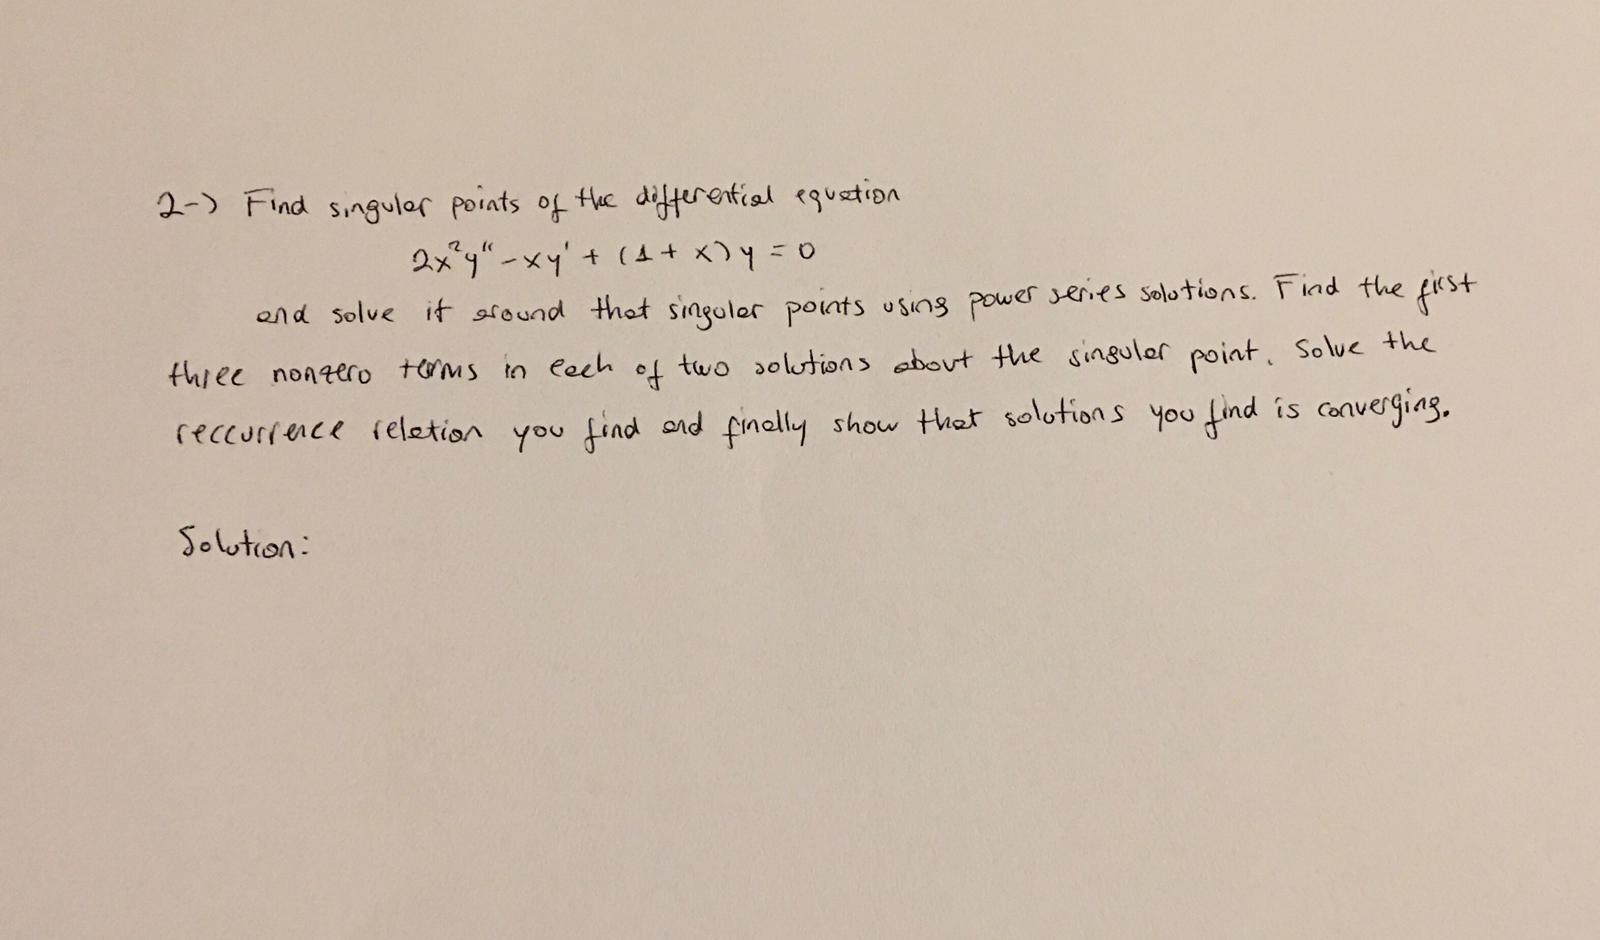 2-) Find singular points of the differential equation
2x²y" - xy' + (1 + x) y = 0
and solve it around that singular points using power series solutions. Find the first
three nonzero terms in each of two solutions about the singular point. Solve the
reccurrence relation you find and finally show that solutions you find is converging.
Solution: